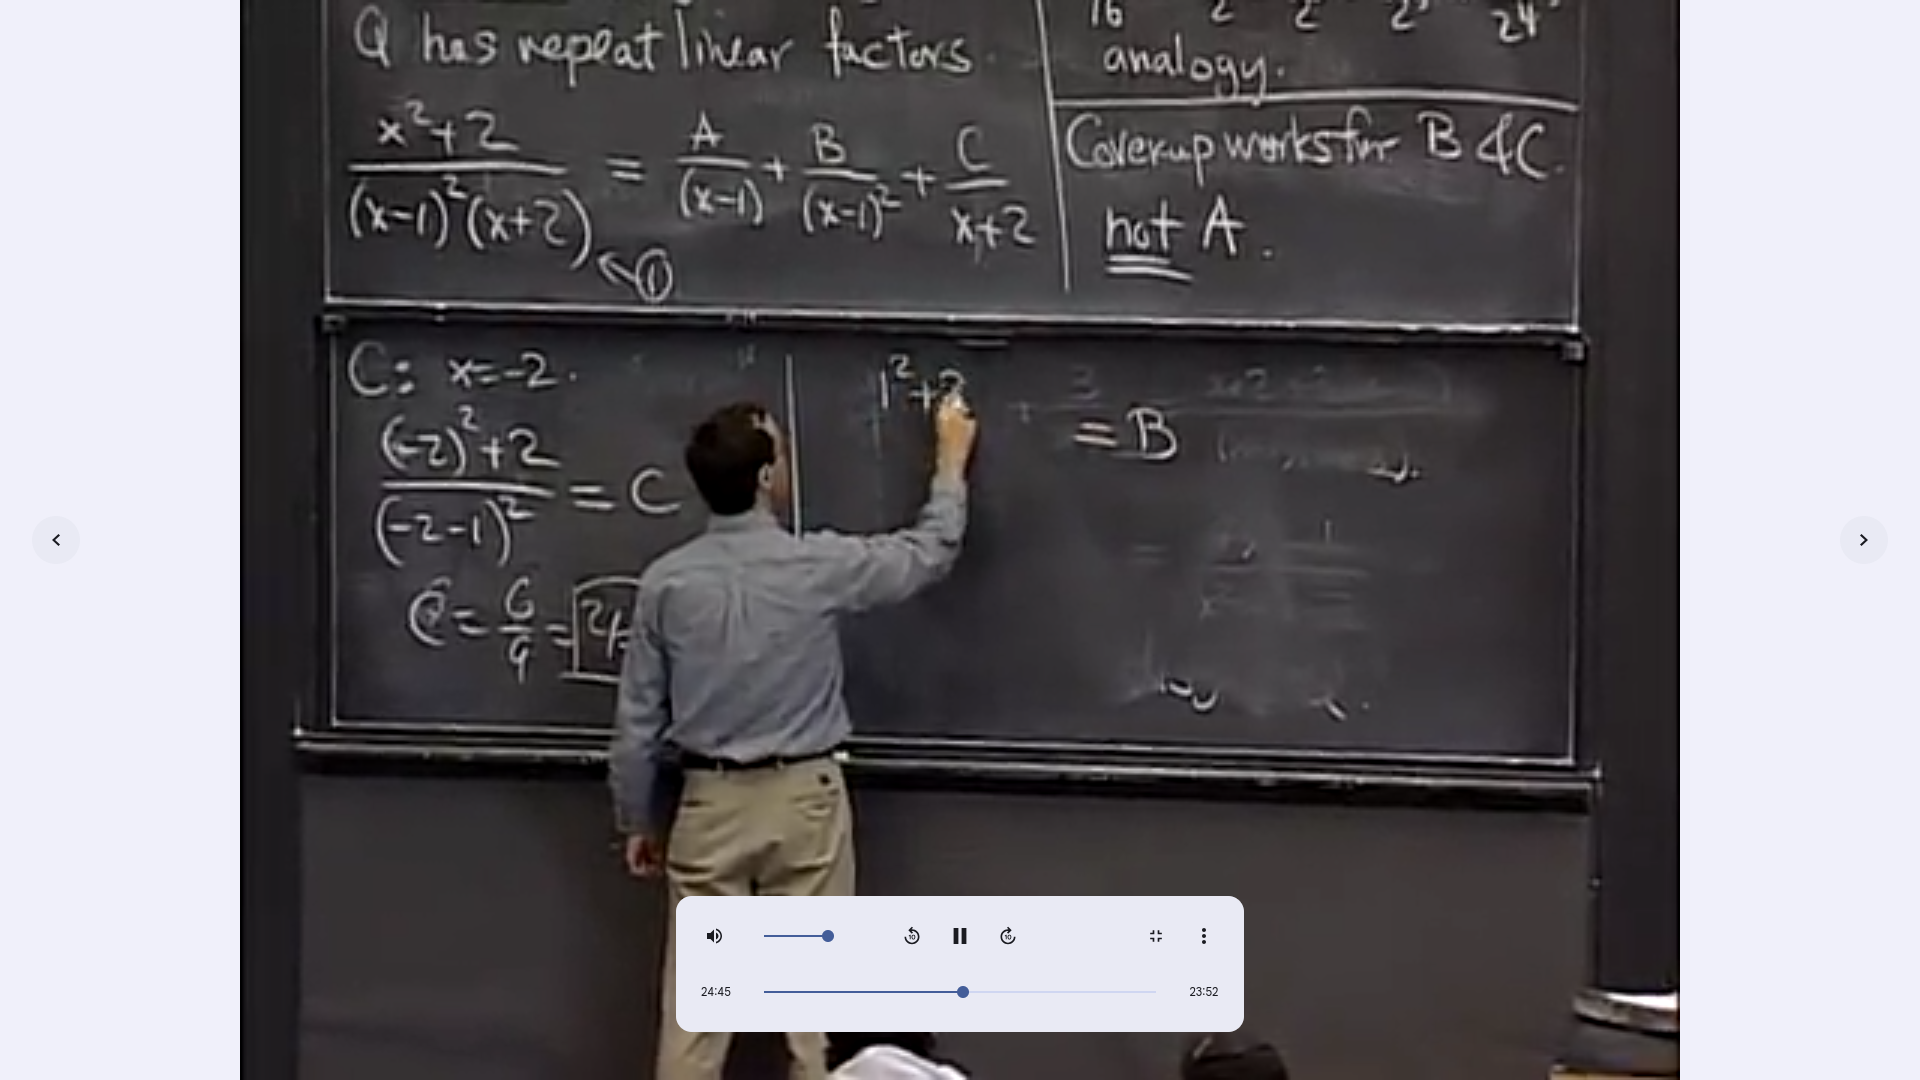 Q has repeat linear factors.
x²+2 / (x-1)²(x+2) = A/(x-1) + B/(x-1)² + C/x+2
←①
16 2 2 2³ 2⁴
analogy.
Coverup works for B & C.
not A.
C: x=-2.
(-2)²+2 / (-2-1)² = C
C = 6/9 =
1²+2
= B
24:45
23:52